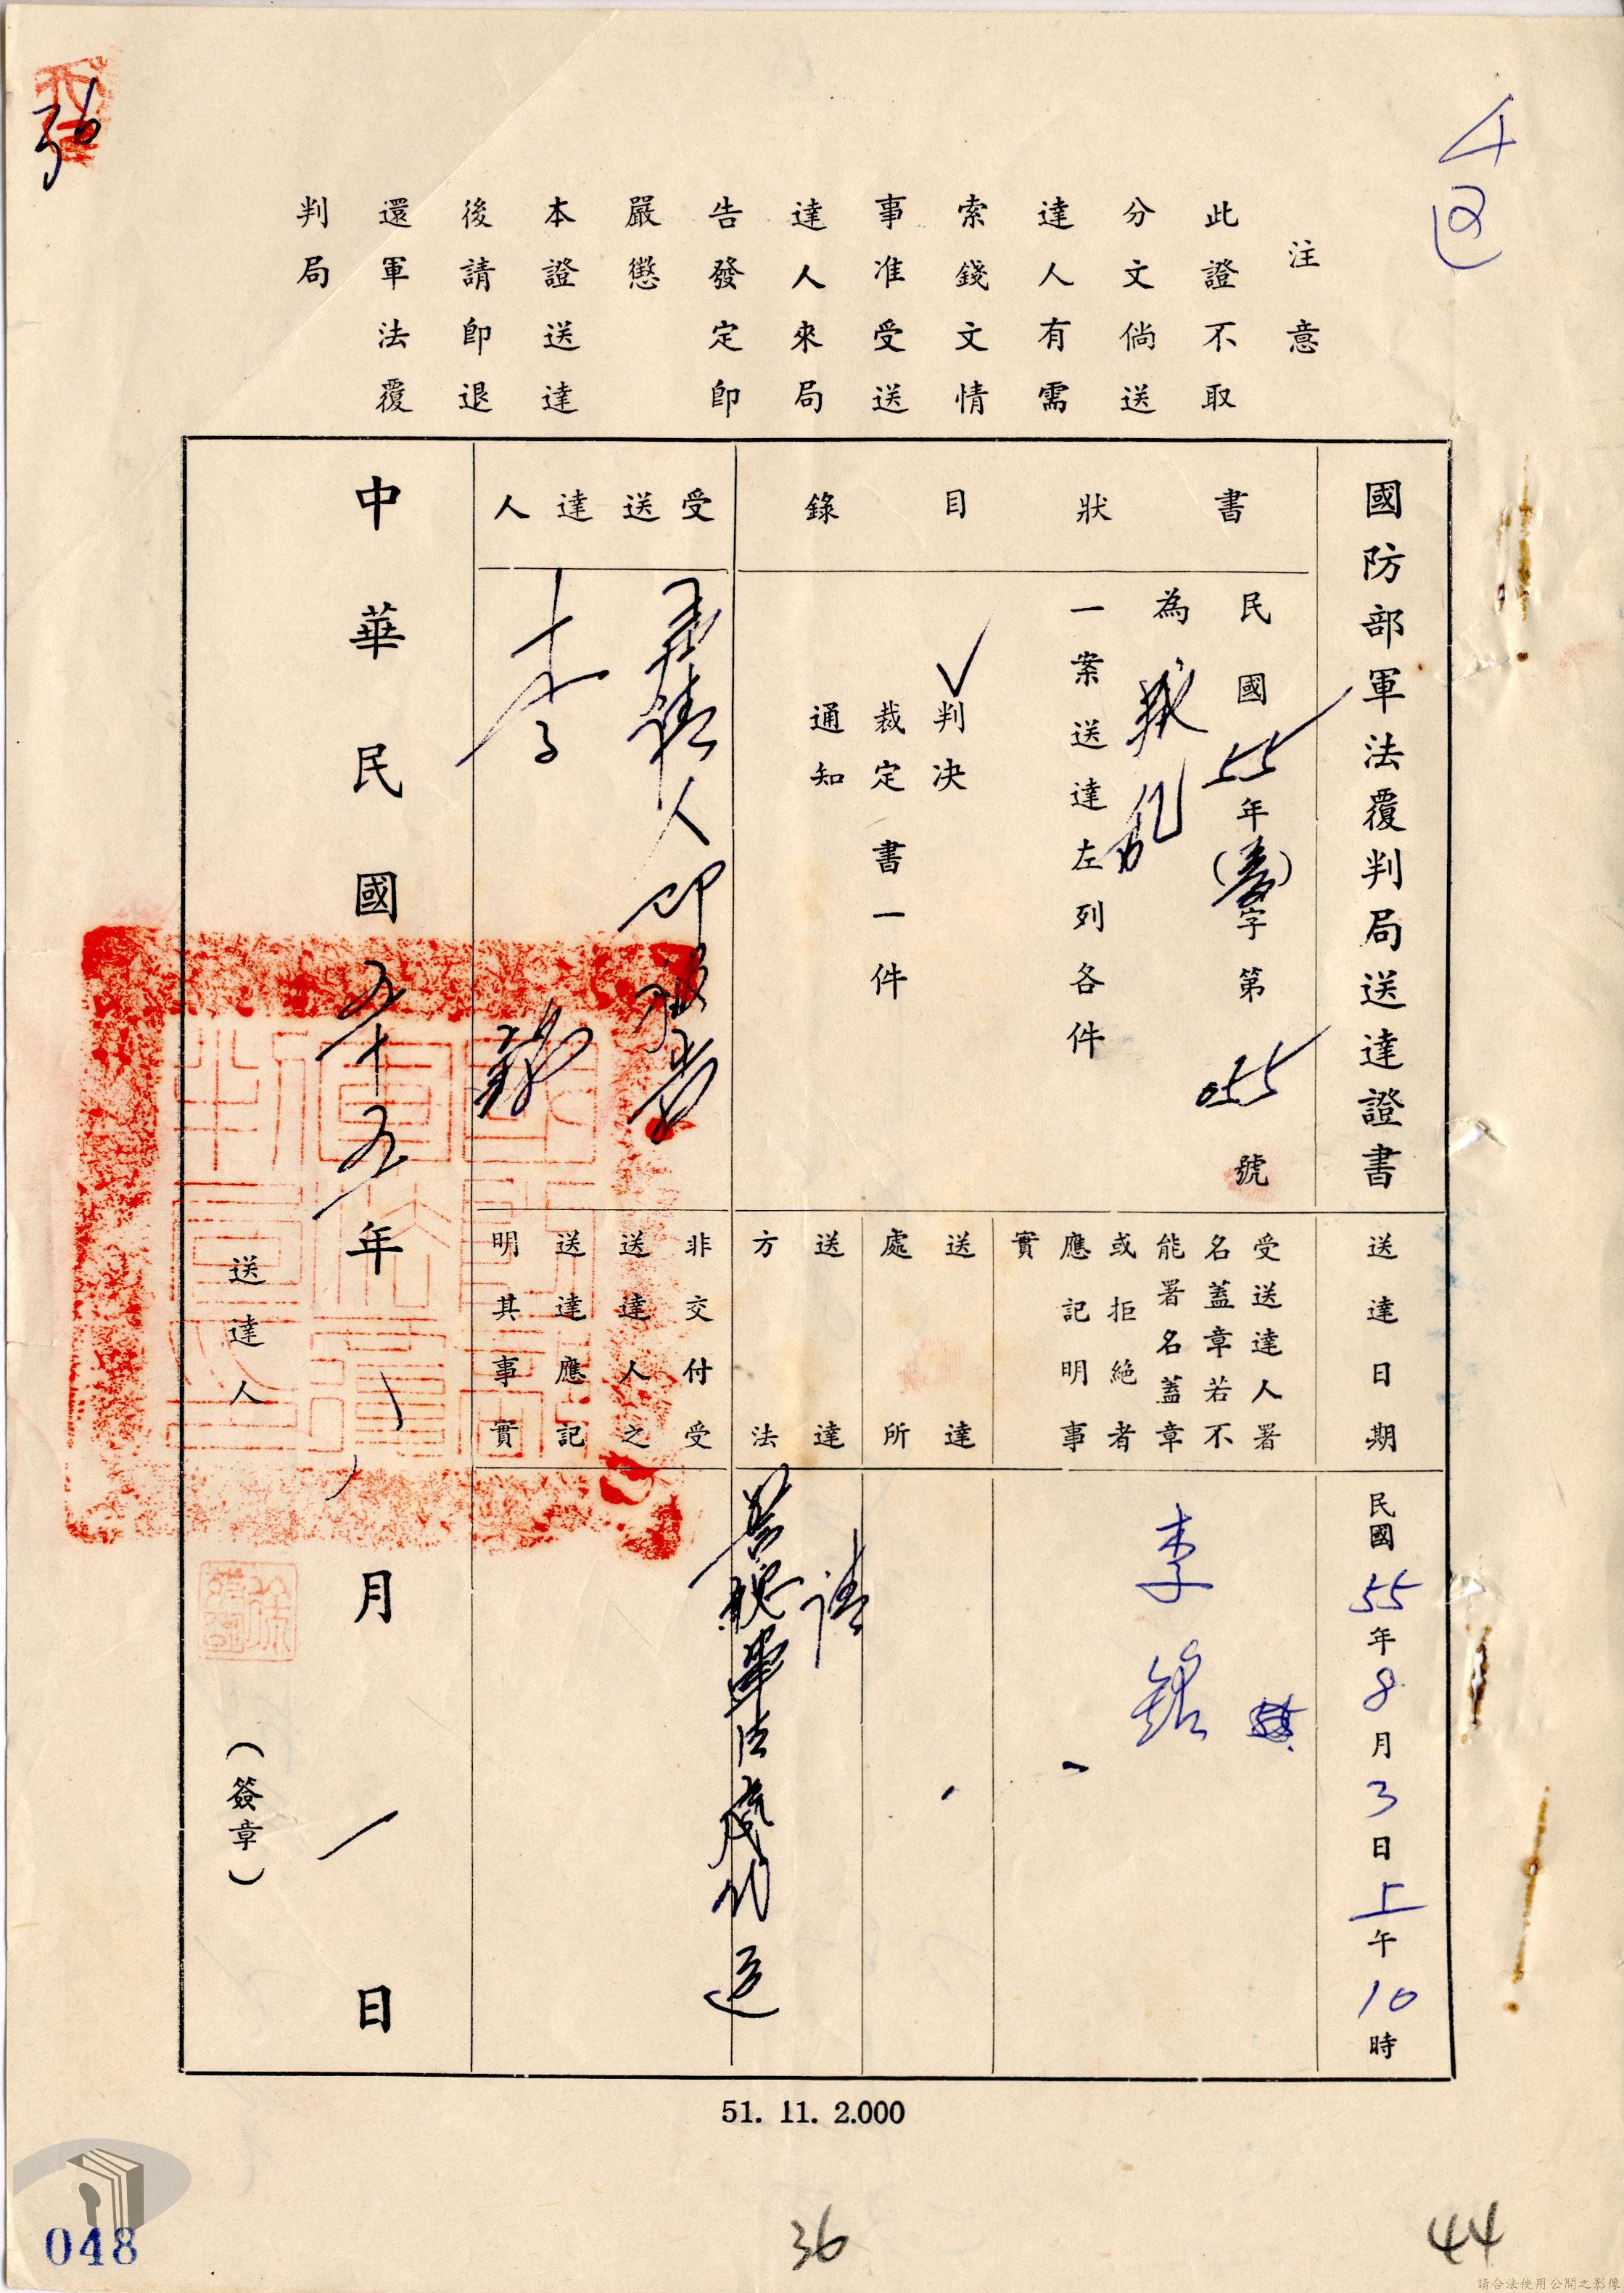 36
4
注意
此證不取
分文倘送
達人有需
索錢文情
事准受送
達人來局
告發定即
嚴懲
本證送達
後請即退
還軍法覆
判局
國防部軍法覆判局送達證書
書狀目錄
民國55年( )字第055號
為叛亂
一案送達左列各件
✓判決
裁定書一件
通知
受送達人
聲請人即被告
李銘
送達日期
民國55年8月3日上午10時
受送達人署
名蓋章若不
能署名蓋章
或拒絕者
應記明事
實
李銘
送達
處所
送達
方法
請
警總軍法處代送
非交付受
送達人之
送達應記
明其事實
中華民國五十五年 月一日
送達人
(簽章)
51. 11. 2.000
048
36
44
請合法使用公開之影像